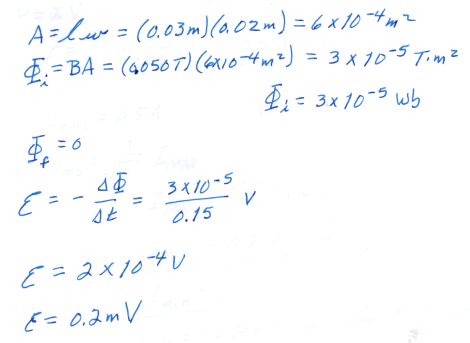 A = lw = (0.03m)(0.02m) = 6 x 10⁻⁴ m²
Φᵢ = BA = (0.050T)(6x10⁻⁴m²) = 3 x 10⁻⁵ T·m²
Φᵢ = 3 x 10⁻⁵ Wb
Φ_f = 0
ℰ = - ΔΦ/Δt = 3x10⁻⁵/0.15 V
ℰ = 2 x 10⁻⁴ V
ℰ = 0.2 mV